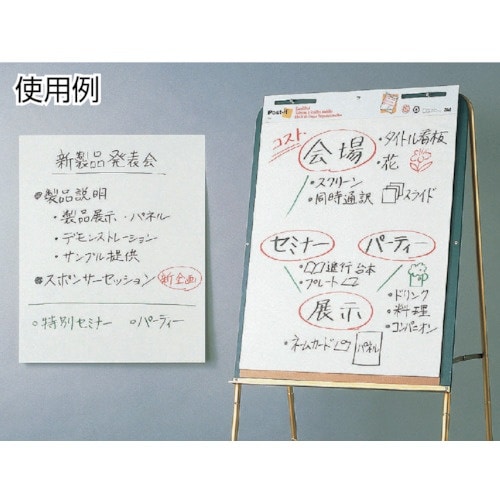 使用例
新製品発表会
●製品説明
・製品展示・パネル
・デモンストレーション
・サンプル提供
●スポンサーセッション 新企画
○特別セミナー ○パーティー
Post-it
3M
コスト
会場
・タイトル看板
・花
・スクリーン
・同時通訳
スライド
セミナー
パーティー
・進行台本
・プレート
展示
・ドリンク
・料理
・コンパニオン
・ネームカード
パネル